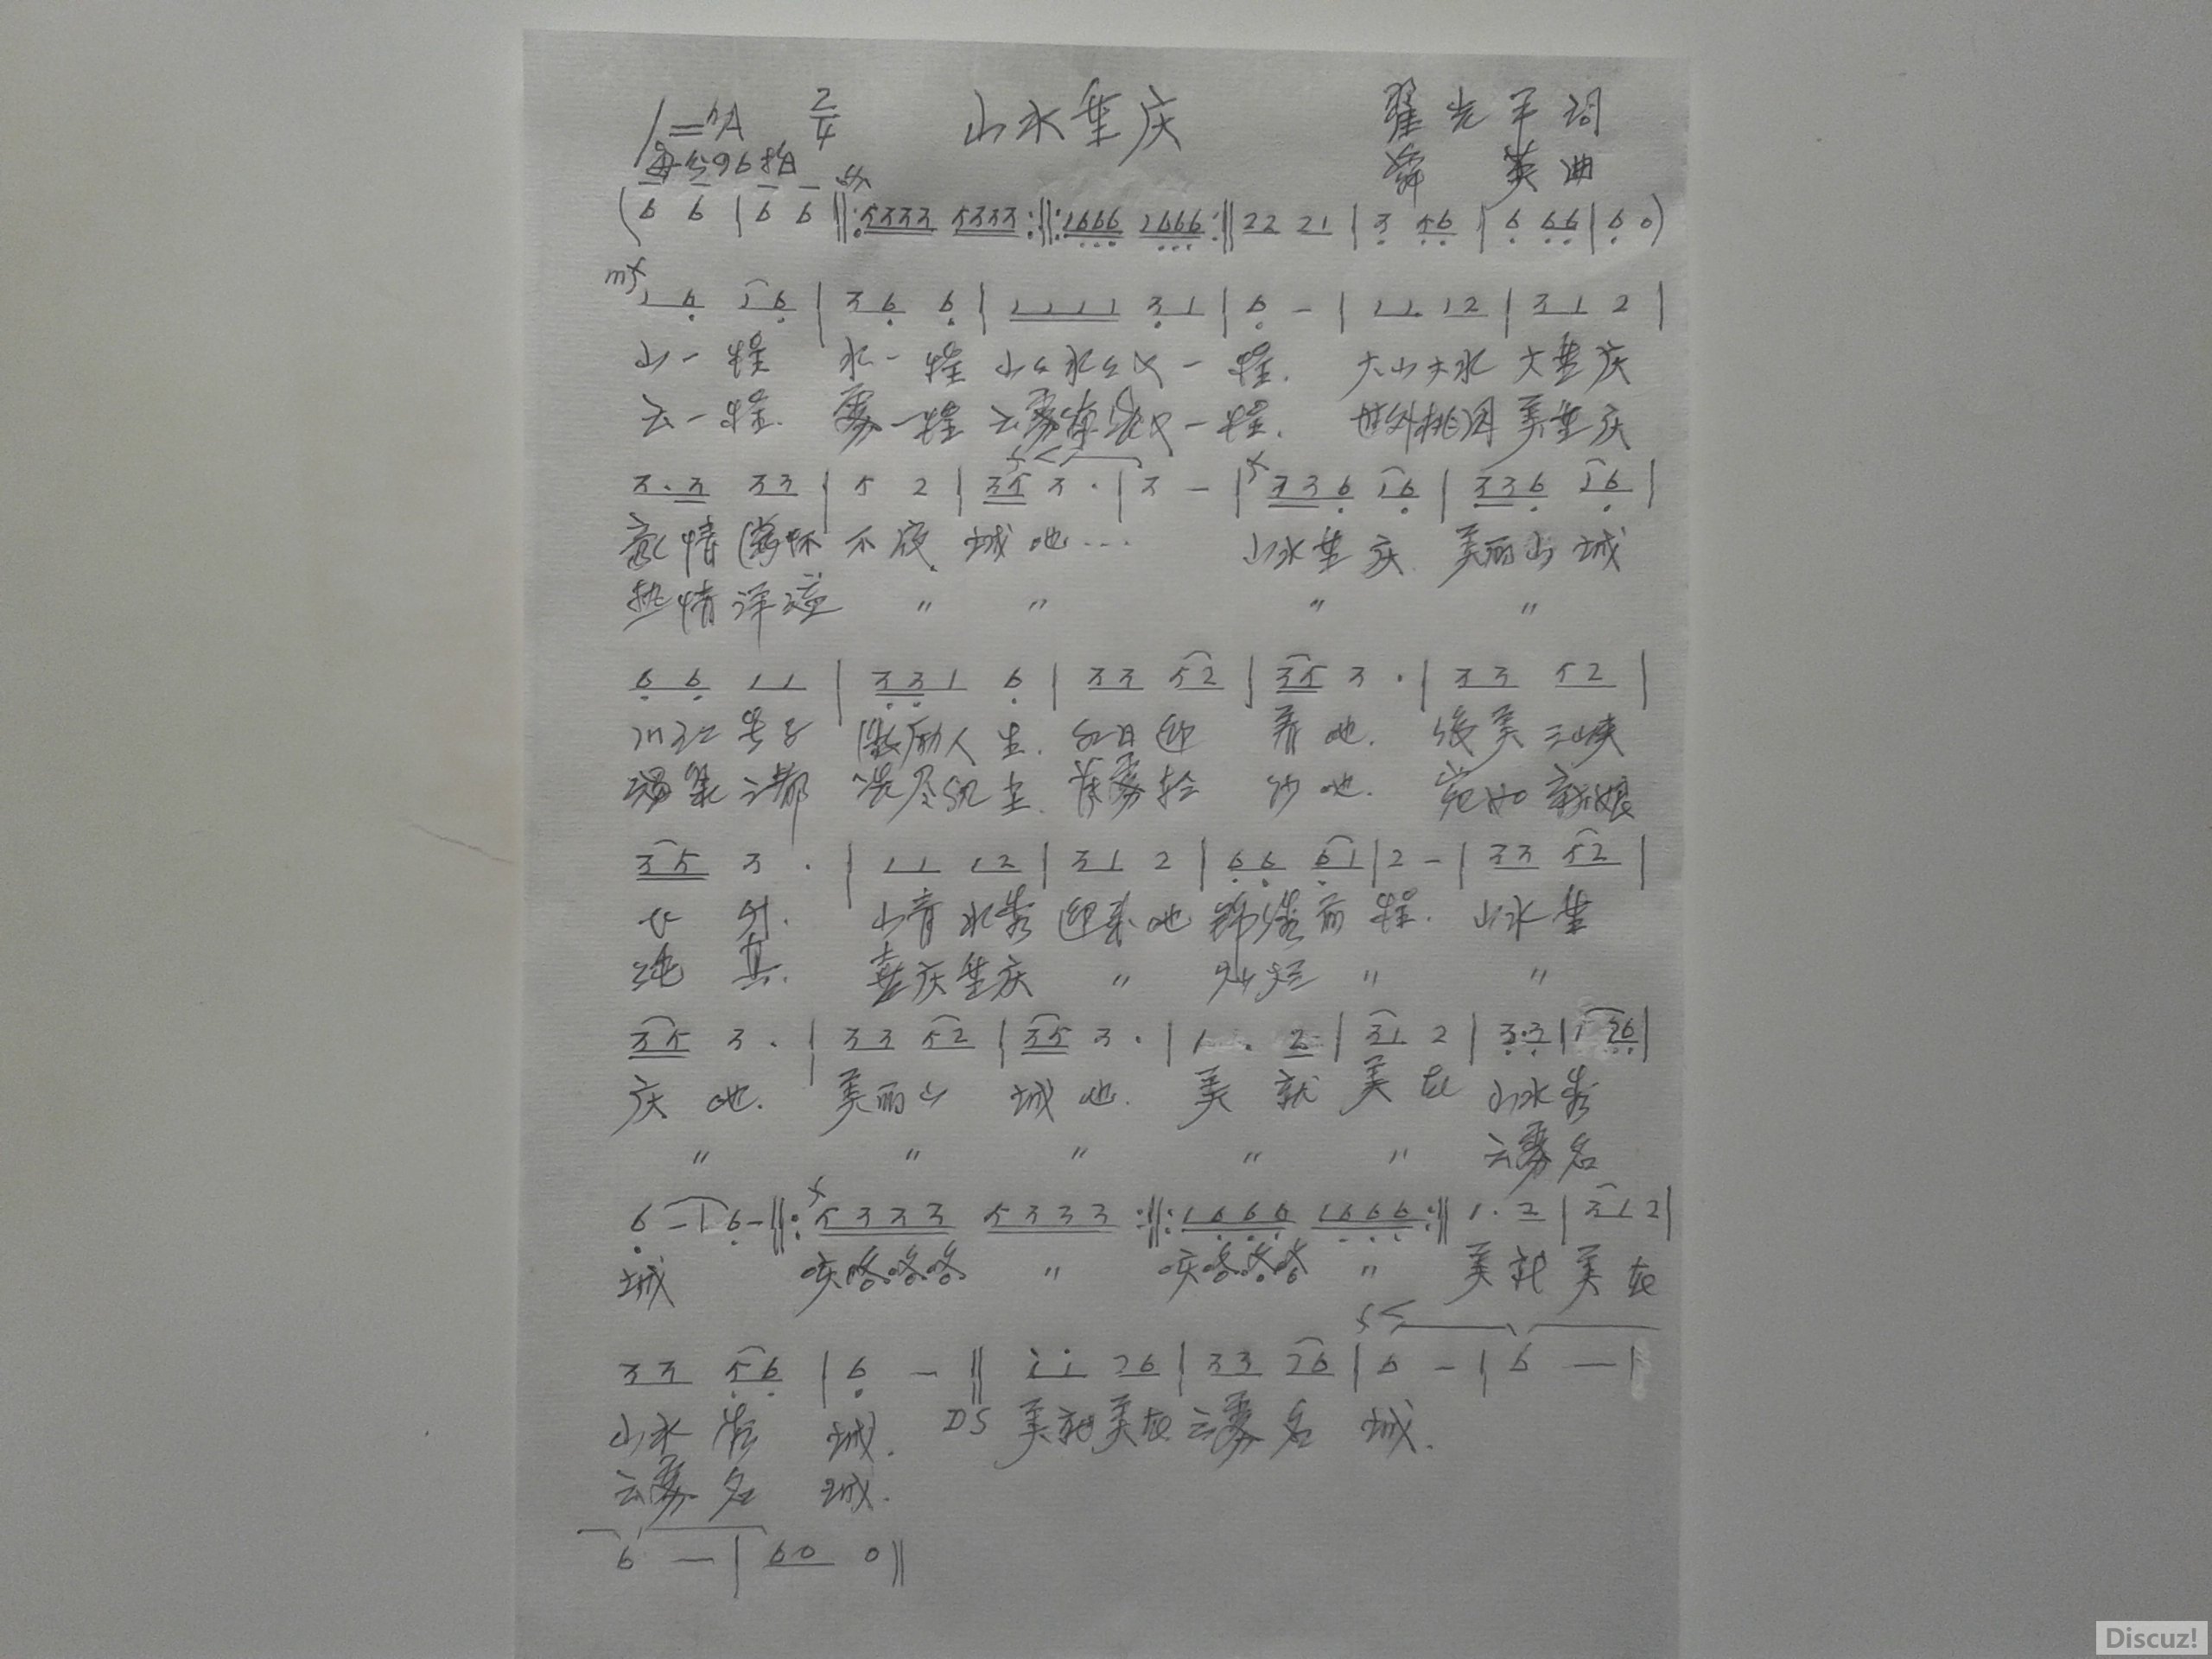 1=bA 2/4 山水重庆 翟光平 词
每分96拍 舜英 曲
(6 6 | 6 6 ‖: 5333 5333 :‖: 1666 1666 :‖ 22 21 | 3 56 | 6 66 | 6 0)
mf 1 6 16 | 36 6 | 1111 31 | 6 - | 11 12 | 31 2 |
山一程 水一程 山山水水又一程. 大山大水 大重庆
云一程. 雾一程 云雾 又一程. 世外桃园 美重庆
3·3 33 | 5 2 | 35 3· | 3 - | f 336 16 | 336 16 |
豪情满怀 不夜 城吔… 山水重庆 美丽山城
热情洋溢 〃 〃 〃 〃
6 6 11 | 331 6 | 33 52 | 35 3· | 33 52 |
川江号子 激励人生. 红日迎 吔. 美三峡
温泉之都 洗尽 尘. 雾轻 纱吔. 宛如新娘
35 3· | 11 12 | 31 2 | 66 61 | 2 - | 33 52 |
山青水秀 迎来吔 锦绣前程. 山水重
纯真. 喜庆重庆 〃 灿烂 〃 〃
35 3· | 33 52 | 35 3· | 1· 2 | 31 2 | 3·3 | 1 26 |
庆吔. 美丽山 城吔. 美就美在 山水秀
〃 〃 〃 〃 〃 云雾名
6 - | 6 - ‖: f 5333 5333 :‖: 1666 1666 :‖ 1·2 | 31 2 |
城 咚咯咯 〃 咯咯咯 〃 美就美在
33 56 | 6 - ‖ i i 26 | 33 26 | 6 - | 6 - |
山水秀 城. DS 美就美在云雾名 城.
云雾名 城.
6 - | 60 0 ‖
Discuz!